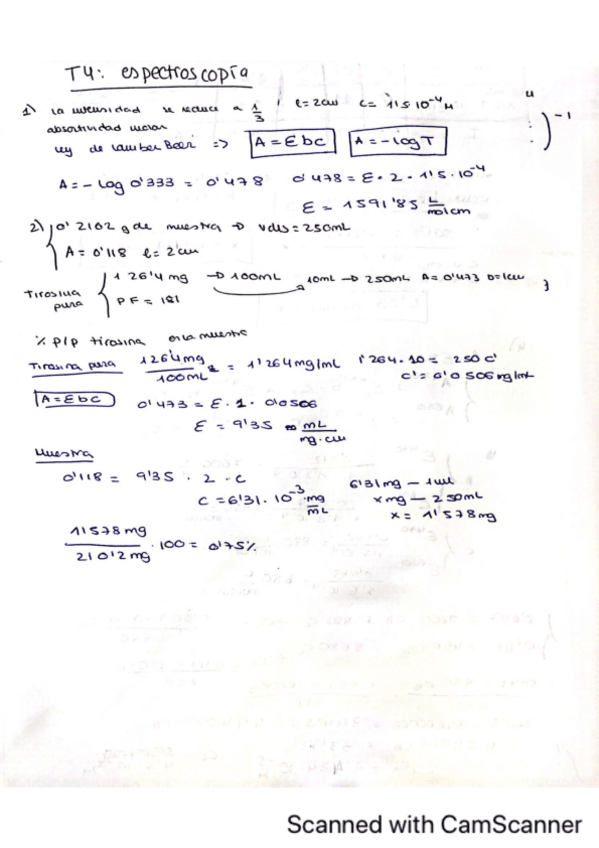 T4: espectroscopía
1) la intensidad se reduce a 1/3 l=2cm c= 1'5·10⁻⁴ M
absortividad molar
ley de Lamber Beer => A=Ɛbc A=-logT
A=-log 0'333 = 0'478 0'478=Ɛ·2·1'5·10⁻⁴
Ɛ=1591'85 L/mol cm
2) 0'2102 g de muestra → Vdis=250mL
A=0'118 l=2cm
Tirosina pura 126'4 mg → 100mL 10mL → 250mL A=0'473 b=1cm
PF=181
% P/P tirosina en la muestra
Tirosina pura 126'4mg/100mL = 1'264mg/mL 1'264·10=250c'
c'=0'0506mg/mL
A=Ɛbc 0'473=Ɛ·1·0'0506
Ɛ=9'35 mL/mg·cm
Muestra
0'118= 9'35·2·c 6'31mg — 1mL
c=6'31·10⁻³ mg/mL x mg — 250mL
x=1'1578mg
1'1578mg/210'2mg ·100=0'75%
Scanned with CamScanner